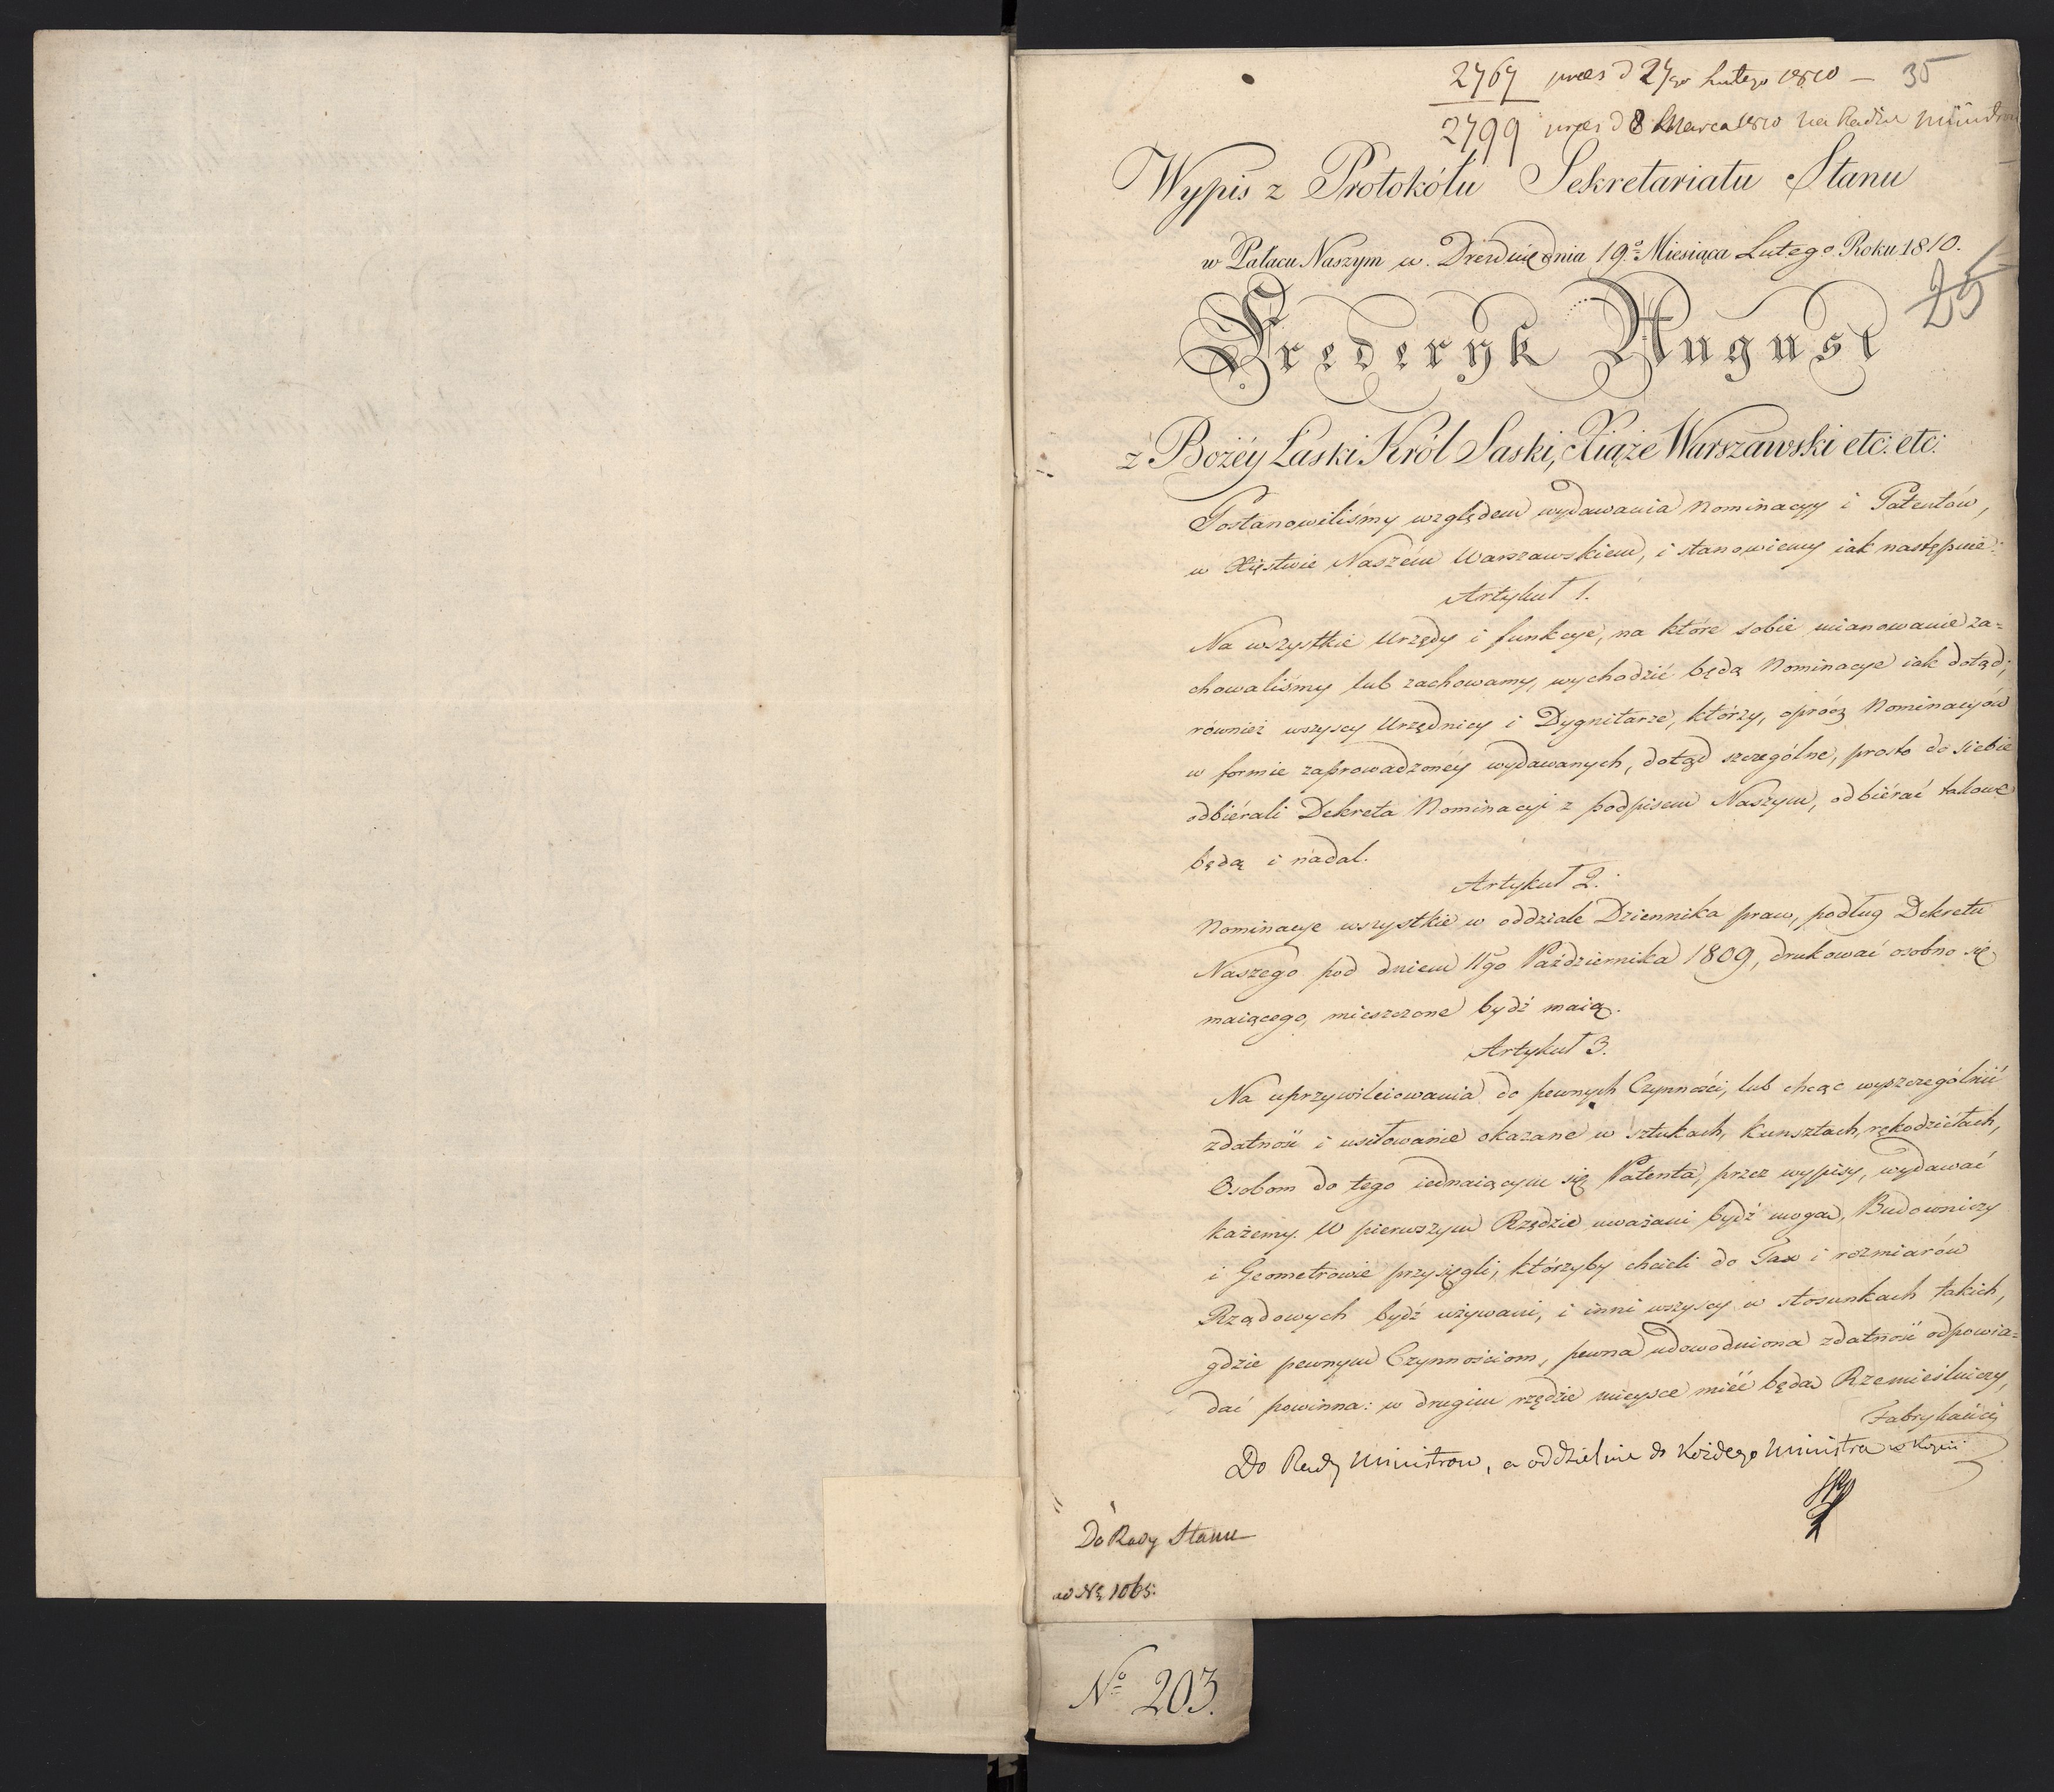 2767 præs d 27go Lutego 1810 — 35
2799 præs d 8 Marca 1810 na Radzie Ministrow
Wypis z Protokółu Sekretariatu Stanu
w Pałacu Naszym w Dreznie dnia 19o Miesiąca Lutego Roku 1810.
25
Fryderyk August
z Bożéy Łaski Król Saski, Xiąże Warszawski etc: etc:
Postanowiliśmy względem wydawania Nominacyy i Patentów,
w Xięstwie Naszém Warszawskiem, i stanowiemy iak następuie:
Artykuł 1.
Na wszystkie Urzędy i funkcye, na które sobie mianowanie za=
chowaliśmy lub zachowamy, wychodzić będą Nominacye iak dotąd;
również wszyscy Urzędnicy i Dygnitarze, którzy, oprócz Nominacyów
w formie zaprowadzonéy wydawanych, dotąd szczególne, prosto do siebie
odbiérali Dekreta Nominacyi z podpisem Naszym, odbiérać takowe
będą i nadal.
Artykuł 2.
Nominacye wszystkie w oddziale Dziennika praw, podług Dekretu
Naszego pod dniem 11go Października 1809, drukować osobno się
maiącego, mieszczone bydź maią.
Artykuł 3.
Na uprzywileiowania do pewnych Czynności, lub chcąc wyszczególnić
zdatność i usiłowanie okazane w sztukach, kunsztach, rękodziełach,
Osobom do tego iednaiącym się Patenta, przez wypisy, wydawać
każemy. W pierwszym Rzędzie uważani bydź mogą, Budowniczy
i Geometrowie przysięgli, którzyby chcieli do Tax i rozmiarów
Rządowych bydź używani, i inni wszyscy w stosunkach takich,
gdzie pewnym Czynnościom, pewna udowodniona zdatność odpowia=
dać powinna: w drugim rzędzie mieysce mieć będą Rzemieślniczy,
Fabrykańcij
Do Rady Ministrow, a oddzielnie do każdego Ministra
Do Rady Stanu
ad No 1065.
No 203.